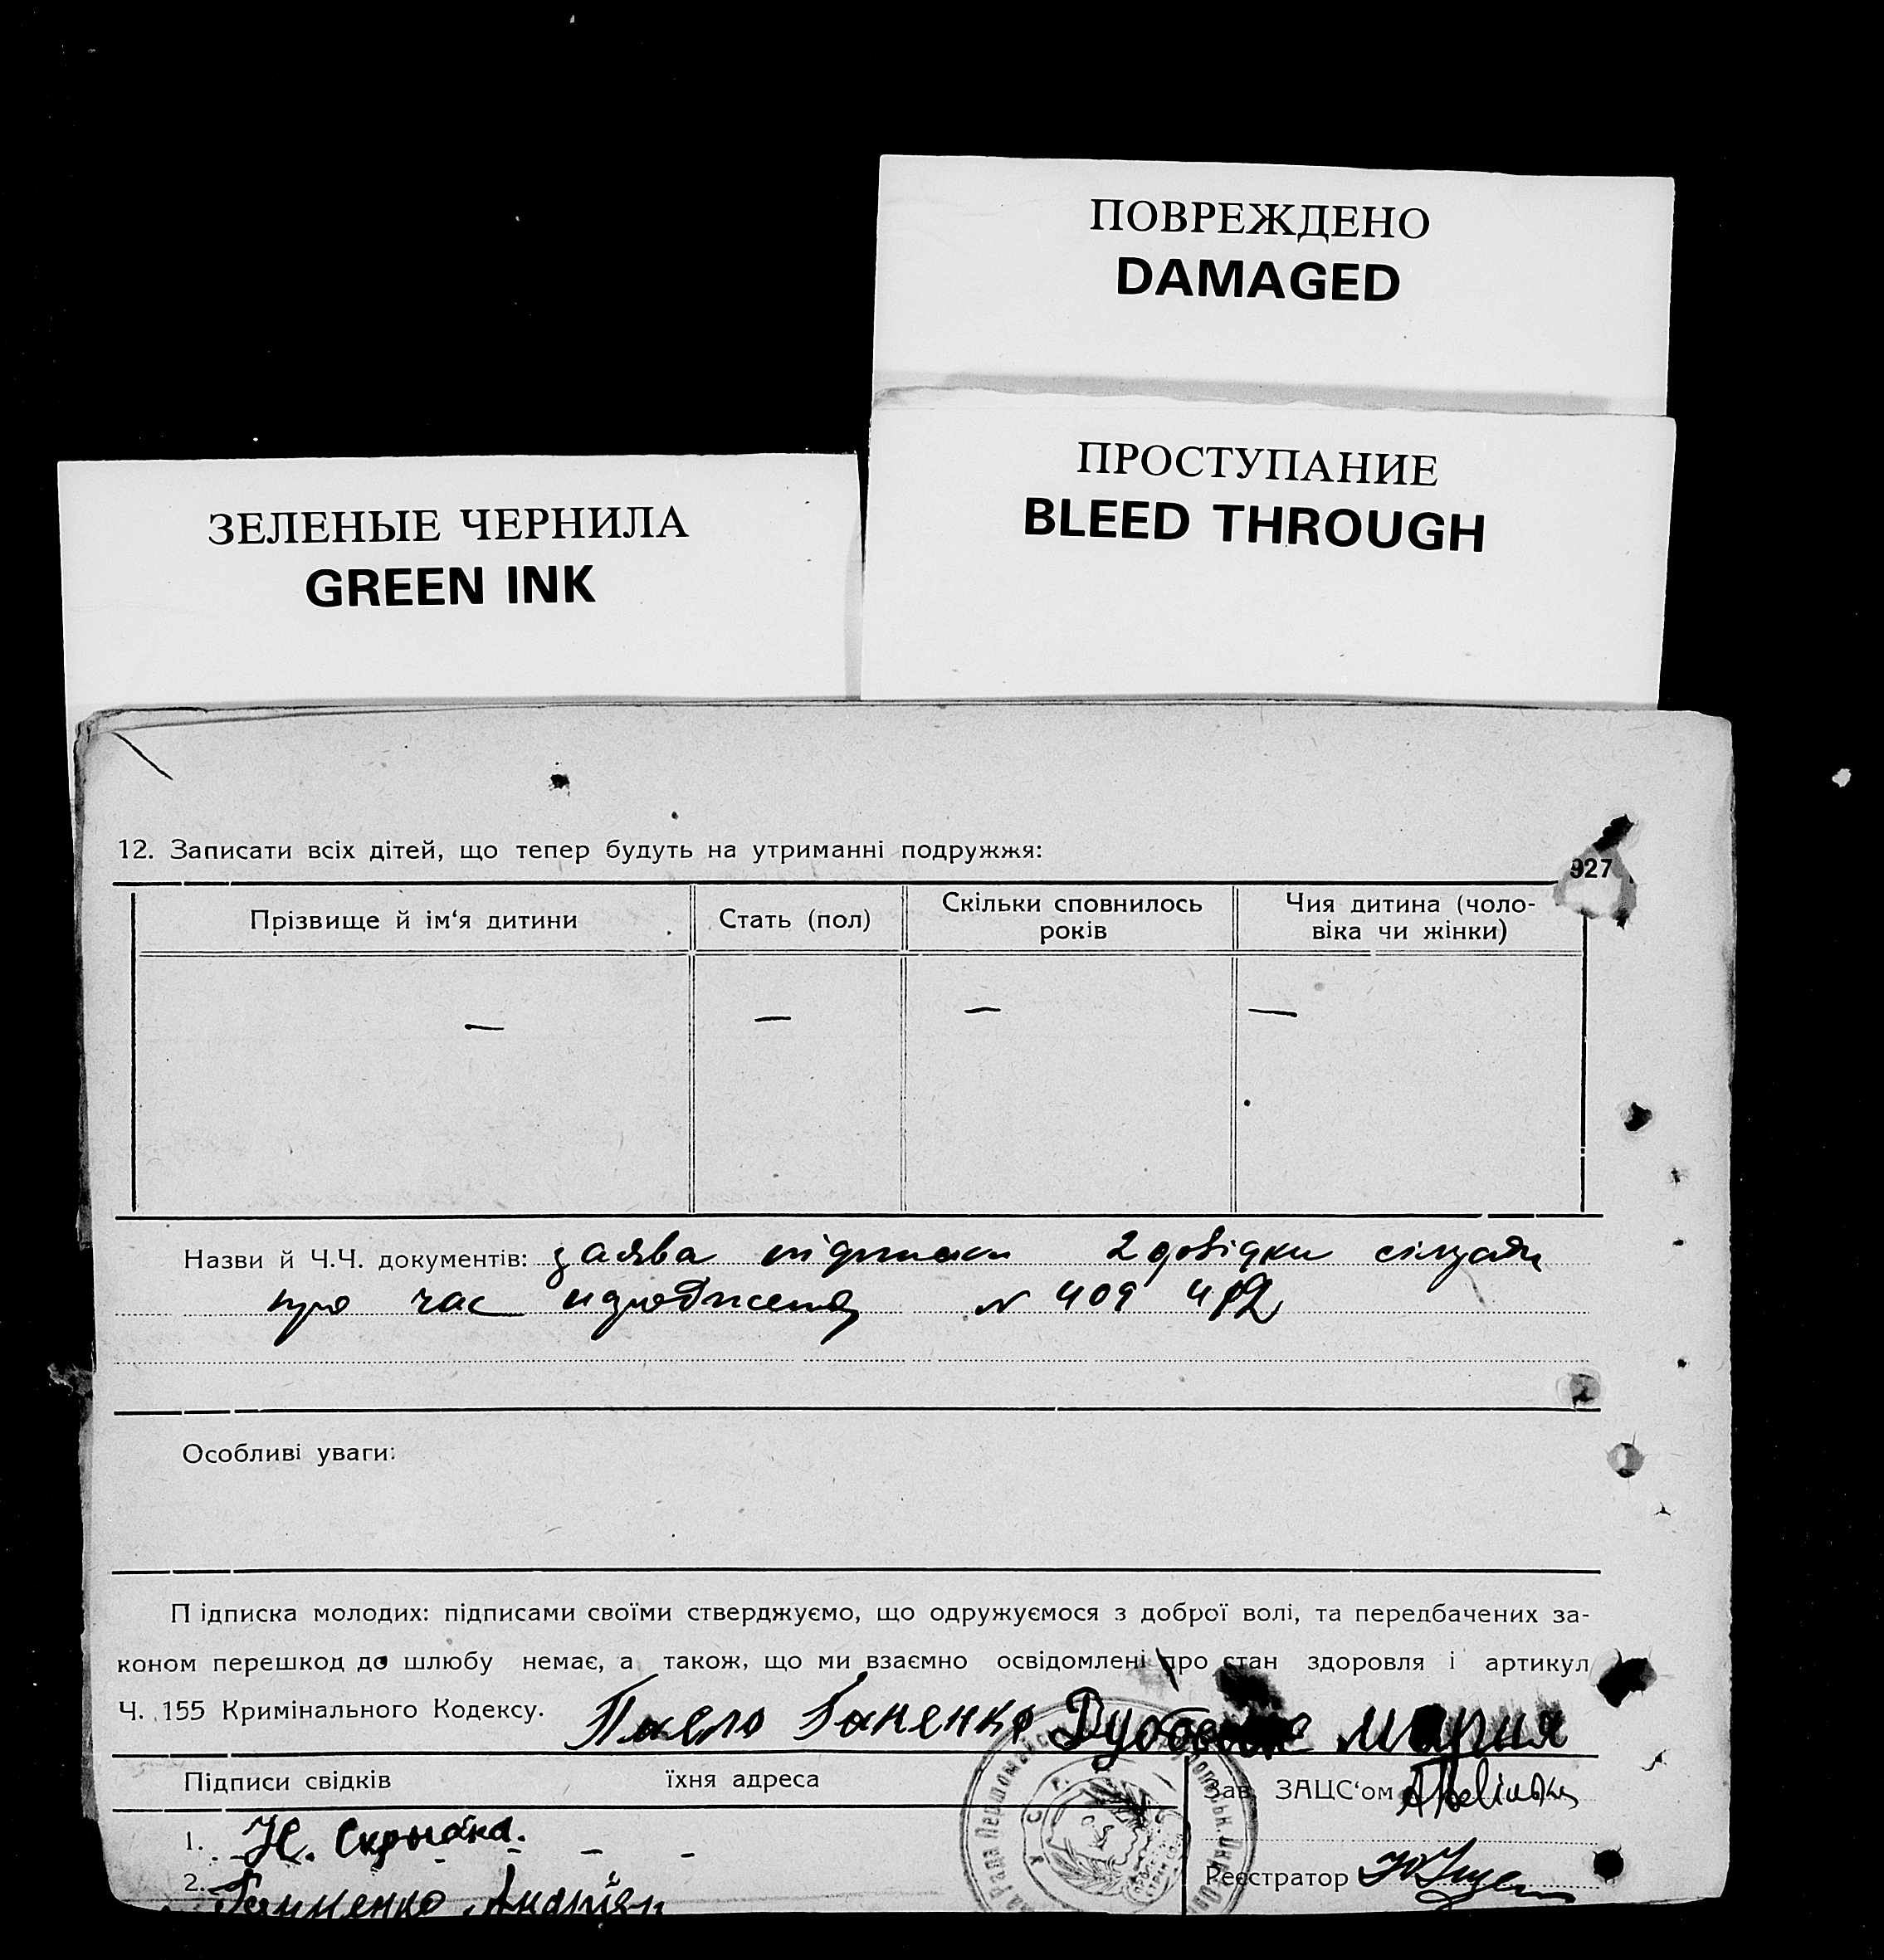 ПОВРЕЖДЕНО
DAMAGED
ПРОСТУПАНИЕ
BLEED THROUGH
ЗЕЛЕНЫЕ ЧЕРНИЛА
GREEN INK
927
12. Записати всіх дітей, що тепер будуть на утриманні подружжя:
Прізвище й ім‘я дитини
Стать (пол)
Скільки сповнилось
років
Чия дитина (чоло-
віка чи жінки)
— — — —
Назви й Ч.Ч. документів: заява підписки 2 довідки
про час N 409 412
Особливі уваги:
Підписка молодих: підписами своїми стверджуємо, що одружуємося з доброї волі, та передбачених за-
коном перешкод до шлюбу немає, а також, що ми взаємно освідомлені про стан здоровля і артикул
Ч. 155 Кримінального Кодексу. Павло Ганенко Мария
Підписи свідків їхня адреса
Зав. ЗАЦС‘ом
1. Н. - - -
2. Андріян
Реєстратор
Рада Першомайс
У С Р Р